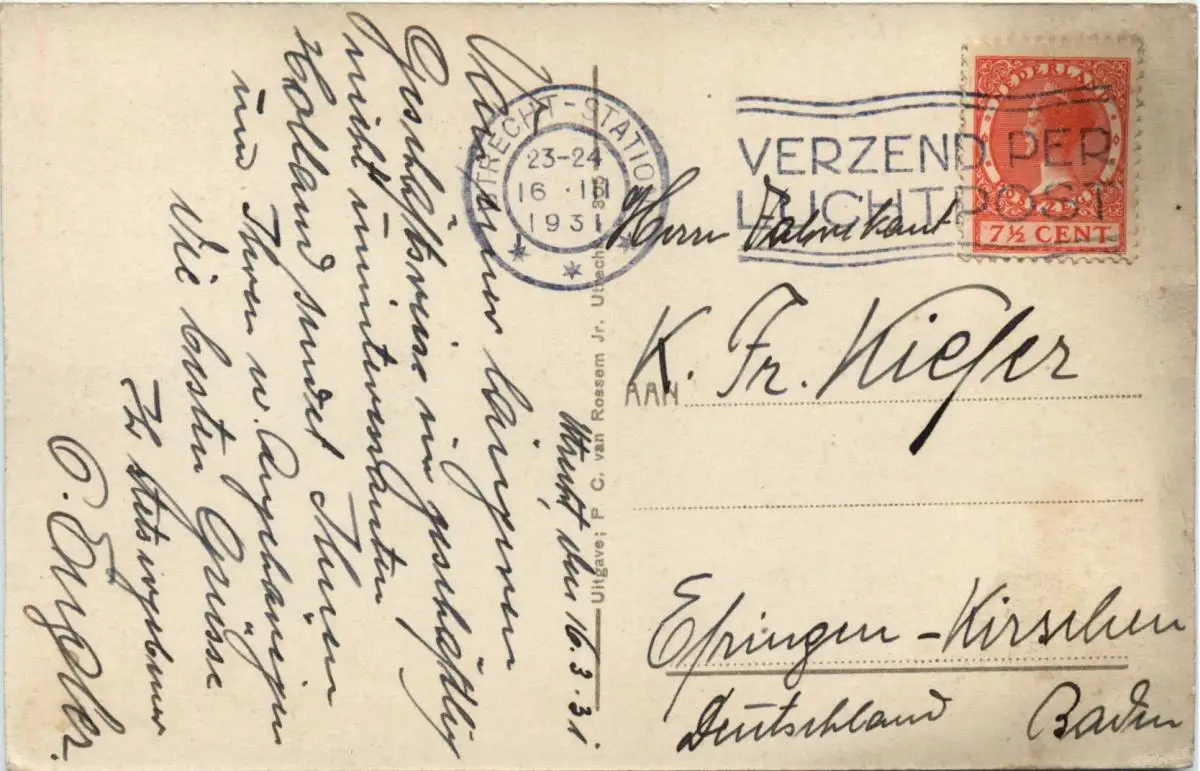 Utrecht den 16.3.31
Von einer längeren
Geschäftsreise im geschäftlich
nicht uninteressanten
Holland sendet Ihnen
und Ihren w. Angehörigen
die besten Grüsse
Ihr stets ergebener
O. Engler.
Uitgave; P. C. van Rossem Jr. Utrecht
UTRECHT-STATION
23-24
16 III
1931
VERZEND PER
LUCHTPOST
NEDERLAND
7½ CENT
Herrn Fabrikant
AAN K. Fr. Kiefer
Efringen-Kirschen
Deutschland Baden